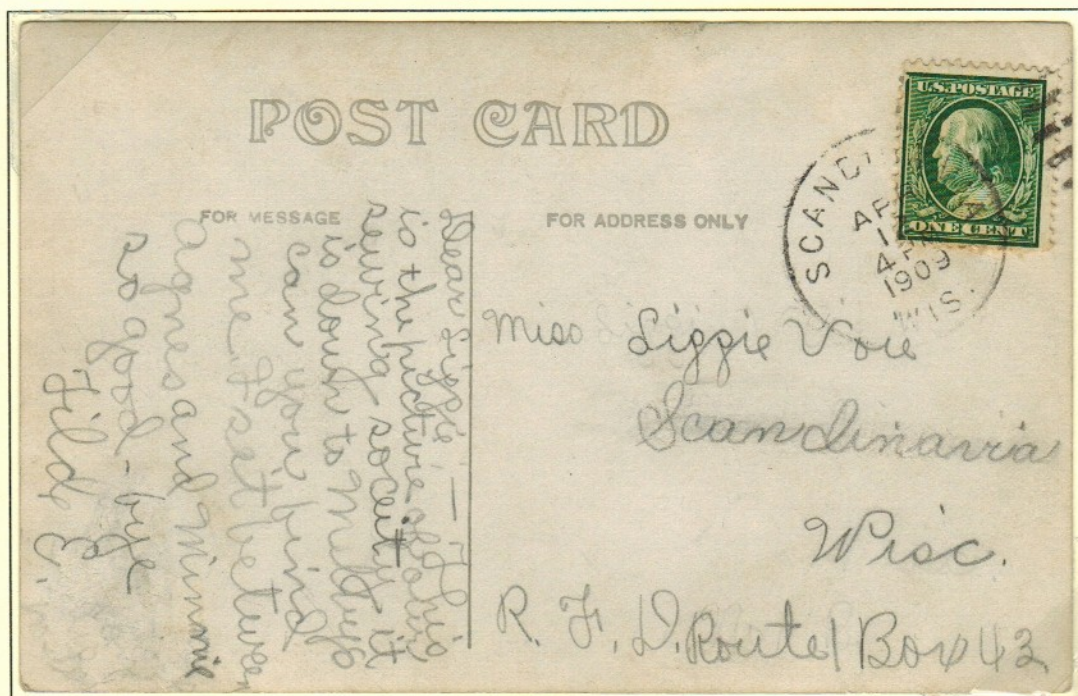 POST CARD
FOR MESSAGE
FOR ADDRESS ONLY
U.S. POSTAGE
ONE CENT
SCAND
4 PM
1909
WIS.
Dear Lizzie — This
is the picture of our
sewing soceity it
is down to
can you find
me. I set between
agnes and Minnie
so good - bye
Tilda E.
Miss Lizzie Voie
Scandinavia
Wisc.
R. F. D. Route 1 Box 43